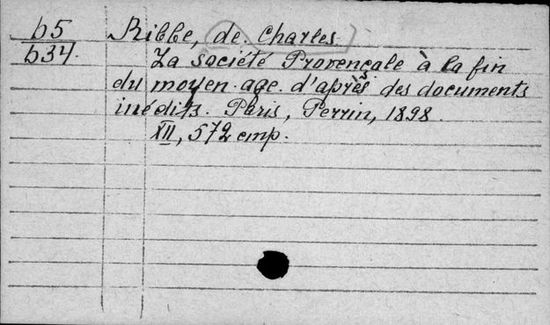 b5 Ribbe, de Charles
b34 La société Provençale à la fin
du moyen age d'après des documents
inédits. Paris, Perrin, 1898.
XII, 572 стр.